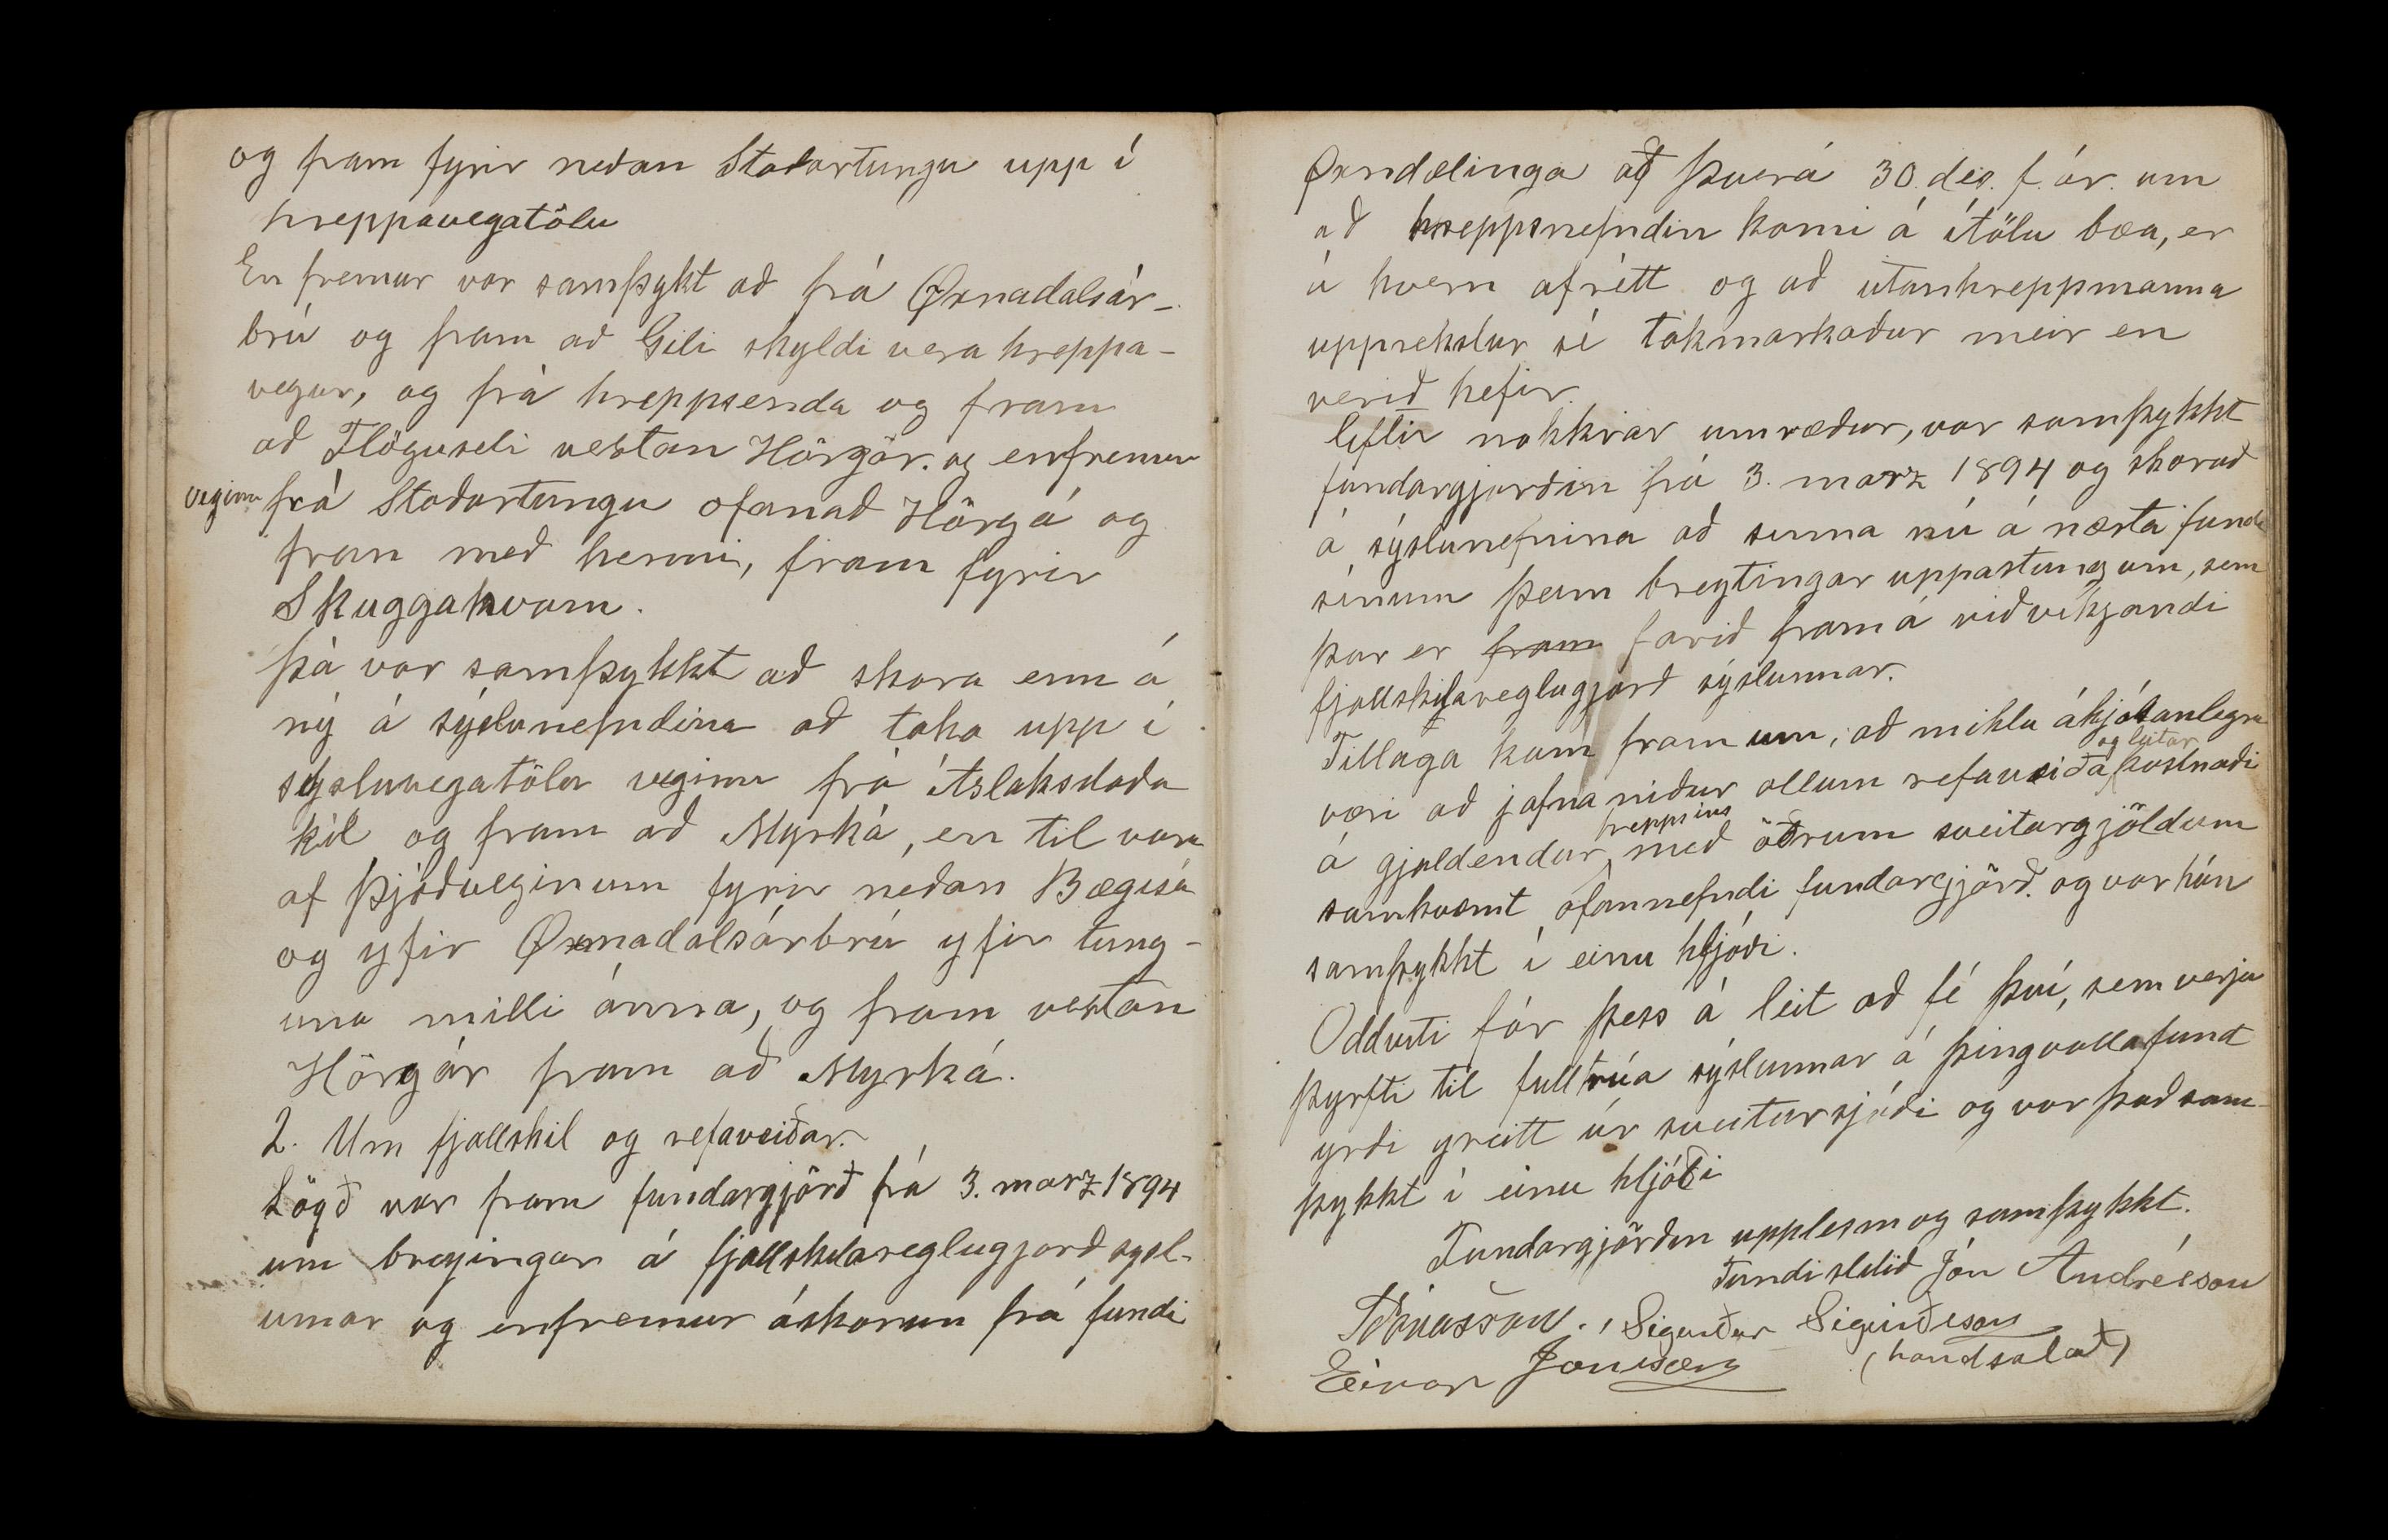 og fram fyrir neðan Staðartungu upp í
hreppavegatölu
En fremur var samþykt að frá Øxnadalsár-
brú og fram að Gili skyldi vera hreppa-
vegur, og frá hreppsenda og fram
að Flöguseli vestan Hörgár. og enfremur
veginn frá Staðartungu ofanað Hörgá og
fram með henni, fram fyrir
Skuggahvam.
Þá var samþykkt að skora enn á
ný á sýslunefndina að taka upp í
sýsluvegatölu veginn frá Áslaksstaða
kíl og fram að Myrká, en til vara
af þjóðveginum fyrir neðan Bægisá
og yfir Øxnadalsárbrú yfir tung-
una milli ánna, og fram vestan
Hörgár fram að Myrká.
2. Um fjallskil og refaveiðar.
Lögð var fram fundargjörð frá 3. marz 1894
um breyingar á fjallskilareglugjorð sysl-
unnar og enfremur áskorun frá fundi
Øxndælinga að Þverá 30. des. f. ár. um
að hreppsnefndin komi á ítölu bæa, er
á hvern afrétt og að utanhreppmanna
upprekstur sé takmarkaður meir en
verið hefir.
Eftir nokkrar umræður, var samþykkt
fundargjorðin frá 3. marz 1894 og skorað
á sýslunefnina að sinna nú á næsta fundi
sínum þeim breytingar uppástungum, sem
þar er fram farið fram á viðvíkjandi
fjallskilareglugjörð sýslunnar.
Tillaga kom fram um, að mikla ákjósanlegra
væri að jafna niður ollum refaveiða og leitar kostnaði
á gjaldendur hreppsins með öðrum sveitargjöldum
samkvæmt ofannefndi fundargjörð. og var hún
samþykkt í einu hljóði.
Oddviti fór þess á leit að fé því, sem verja
þyrfti til fulltrúa sýslunnar á þingvallafund
yrði greitt úr sveitarsjóði og var það sam-
þykkt í einu hljóði
Fundargjörðin upplesin og samþykkt.
Fundi slitið Jón Andrésson
Sigurður Sigurðsson
Einar Jónsson (handsalað)